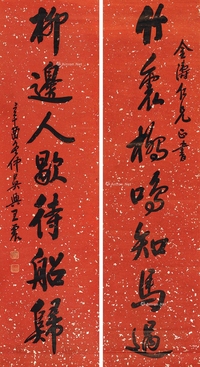 金濤仁兄正書
竹裏橋鳴知馬過
柳邊人歇待船歸
辛酉冬仲吳興王震